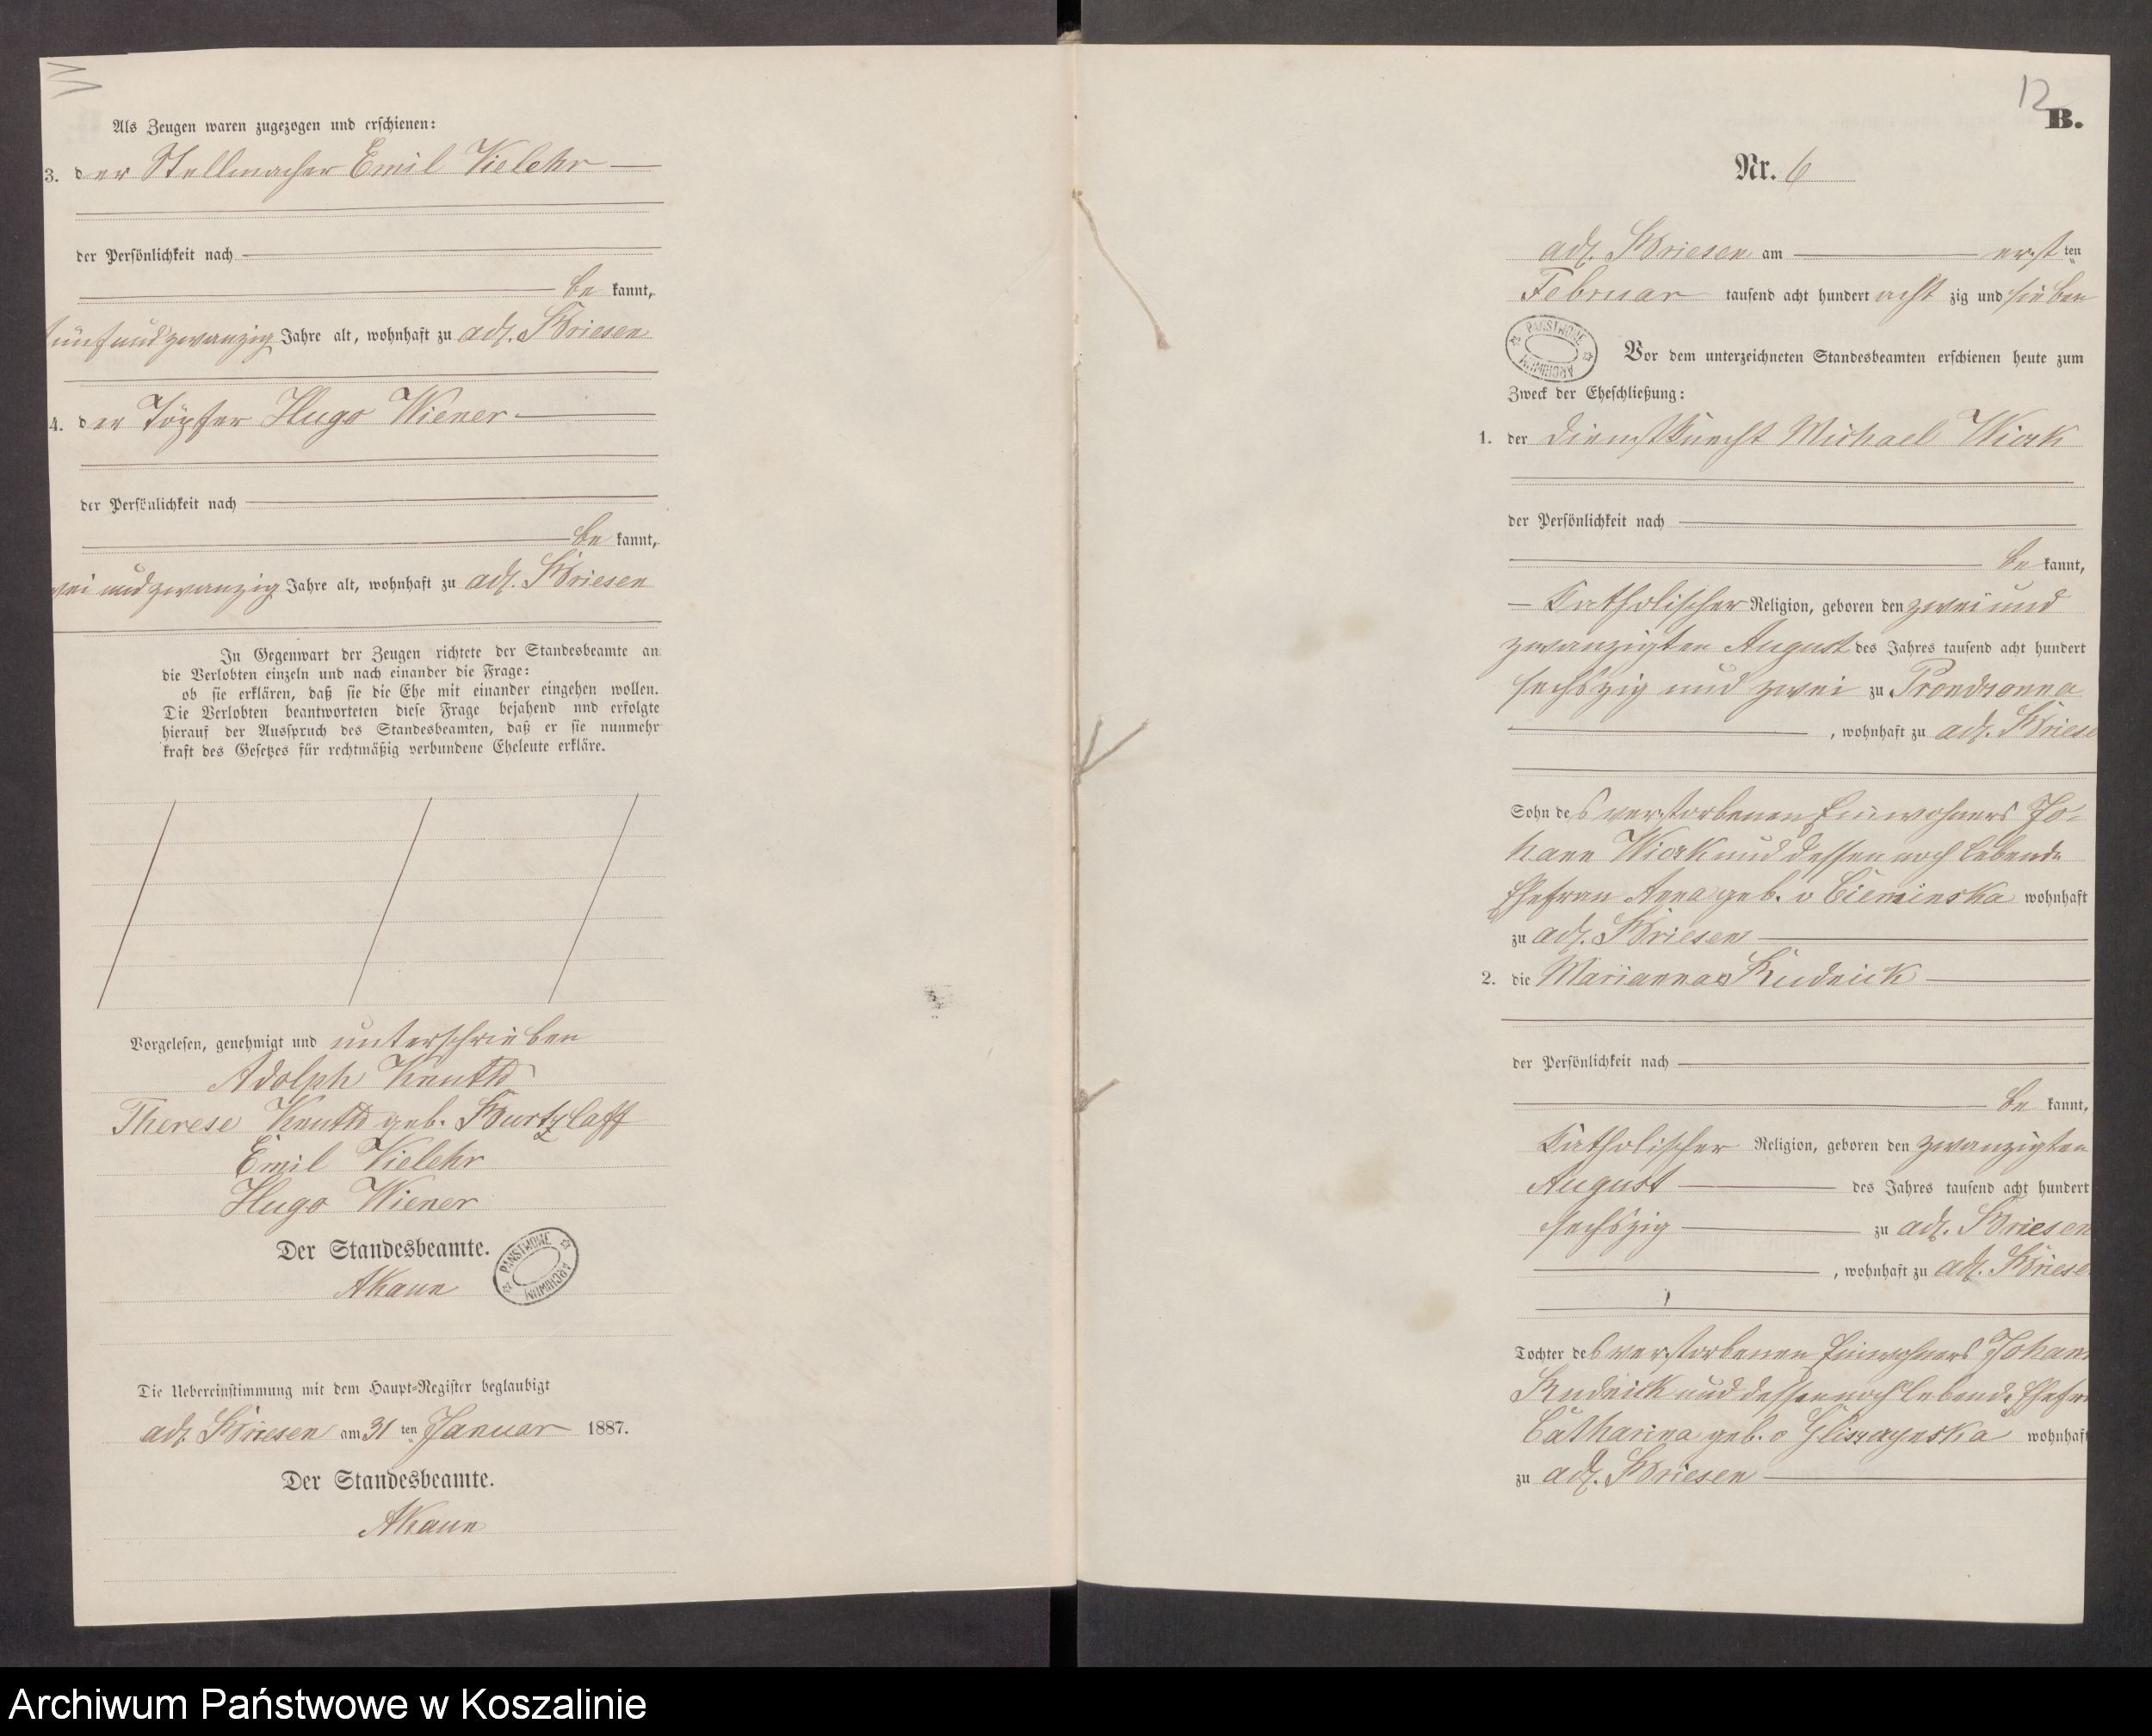 Als Zeugen waren zugezogen und erschienen:
3. der Stellmacher Emil Vielehr
der Persönlichkeit nach
be kannt,
fünfundzwanzig Jahre alt, wohnhaft zu adl. Briesen
4. der Töpfer Hugo Wiener
der Persönlichkeit nach
be kannt,
zwei und zwanzig Jahre alt, wohnhaft zu adl. Briesen
In Gegenwart der Zeugen richtete der Standesbeamte an
die Verlobten einzeln und nach einander die Frage:
ob sie erklären, daß sie die Ehe mit einander eingehen wollen.
Die Verlobten beantworteten diese Frage bejahend nnd erfolgte
hierauf der Ausspruch des Standesbeamten, daß er sie nunmehr
kraft des Gesetzes für rechtmäßig verbundene Eheleute erkläre.
Vorgelesen, genehmigt und unterschrieben
Adolph Knuth
Therese Knuth geb. Burtzlaff
Emil Vielehr
Hugo Wiener
Der Standesbeamte.
PAŃSTWOWE ARCHIWUM
Die Uebereinstimmung mit dem Haupt-Register beglaubigt
adl. Briesen am 31 ten Januar 1887.
Der Standesbeamte.
12
B.
Nr. 6
adl. Briesen am erst ten
Februar tausend acht hundert acht zig und sieben
PAŃSTWOWE ARCHIWUM
Vor dem unterzeichneten Standesbeamten erschienen heute zum
Zweck der Eheschließung:
1. der Dienstknecht Michael Wirk
der Persönlichkeit nach
be kannt,
katholischer Religion, geboren den zwei und
zwanzigten August des Jahres tausend acht hundert
sechszig und zwei zu Prondzonna
, wohnhaft zu adl. Briese
Sohn des verstorbenen Einwohners Jo-
hann Wirk und dessen noch lebende
Ehefrau Anna geb. v Cieminska wohnhaft
zu adl. Briesen
2. die Marianna Rudnick
der Persönlichkeit nach
be kannt,
katholischer Religion, geboren den zwanzigten
August des Jahres tausend acht hundert
sechszig zu adl. Briesen
, wohnhaft zu adl. Briese
Tochter des verstorbenen Einwohners Johann
Rudnick und dessen noch lebende Ehefrau
Catharina geb. v Gliszczynska wohnhaft
zu adl. Briesen
Archiwum Państwowe w Koszalinie